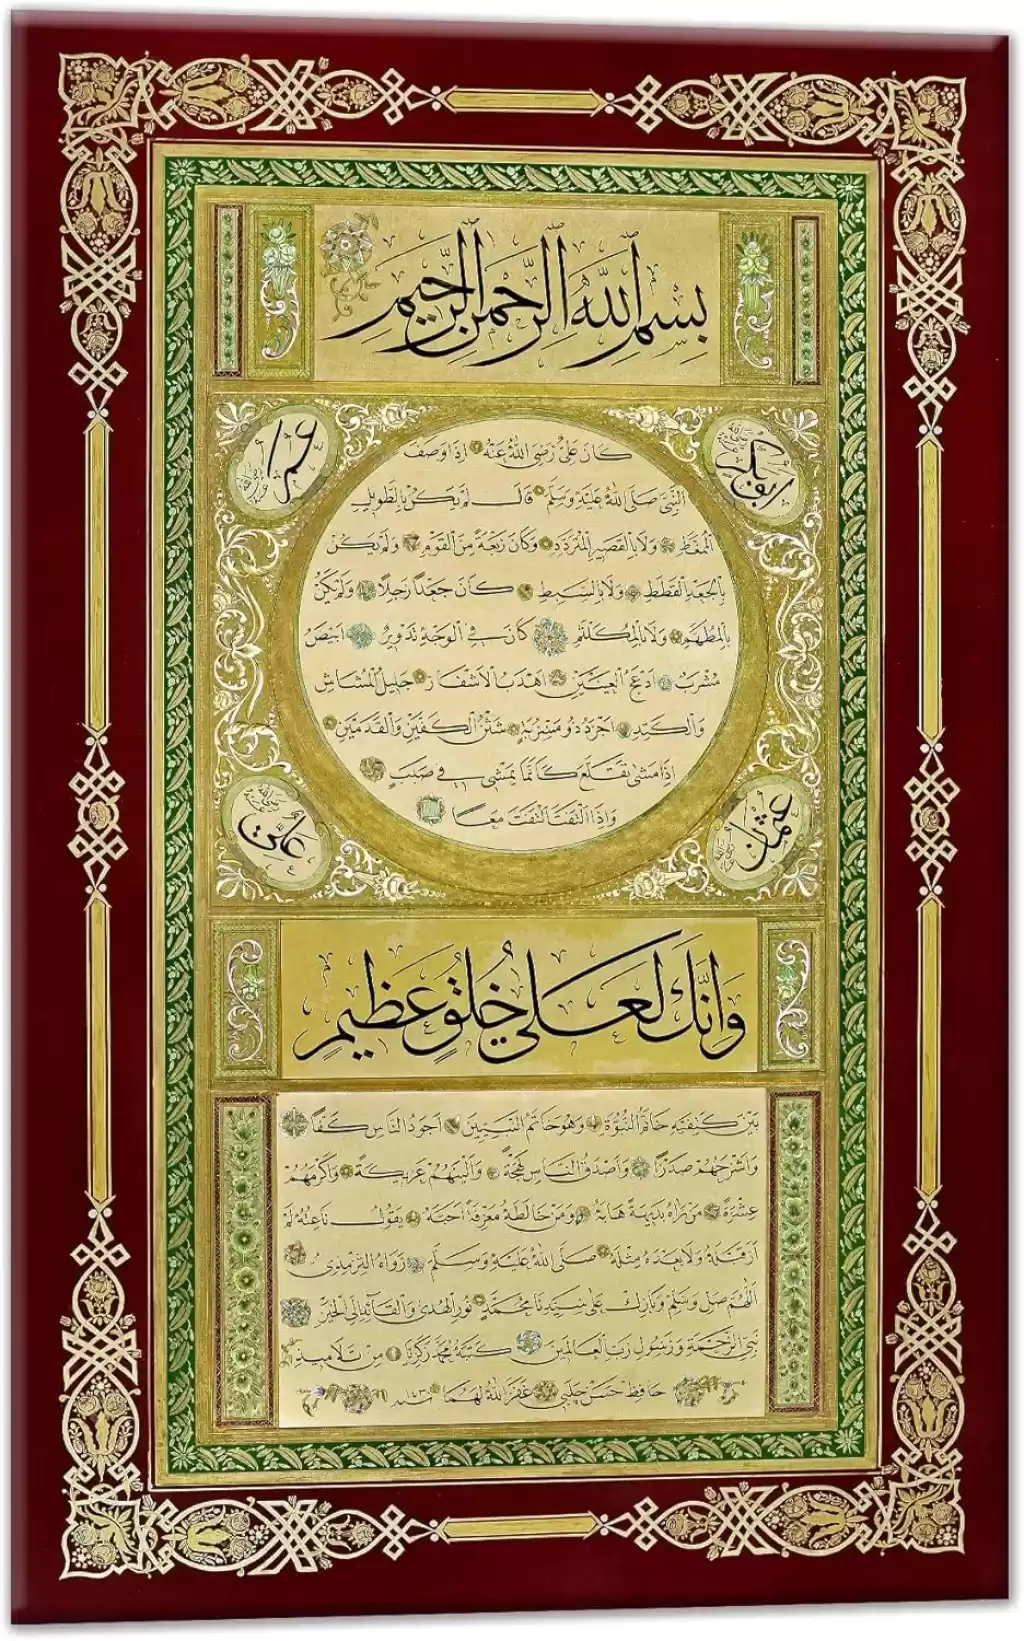 بِسْمِ اللّٰهِ الرَّحْمٰنِ الرَّحِيمِ
ابو بكر رضي الله عنه
عمر رضي الله عنه
كَانَ عَلِيٌّ رَضِيَ اللّٰهُ عَنْهُ اِذَا وَصَفَ
النَّبِيَّ صَلَّى اللّٰهُ عَلَيْهِ وَسَلَّمَ قَالَ لَمْ يَكُنْ بِالطَّوِيلِ
الْمُمَّغِطِ وَلَا بِالْقَصِيرِ الْمُتَرَدِّدِ وَكَانَ رَبْعَةً مِنَ الْقَوْمِ وَلَمْ يَكُنْ
بِالْجَعْدِ الْقَطَطِ وَلَا بِالسَّبِطِ كَانَ جَعْدًا رَجِلًا وَلَمْ يَكُنْ
بِالْمُطَهَّمِ وَلَا بِالْمُكَلْثَمِ كَانَ فِي الْوَجْهِ تَدْوِيرٌ اَبْيَضُ
مُشْرَبٌ اَدْعَجُ الْعَيْنَيْنِ اَهْدَبُ الْاَشْفَارِ جَلِيلُ الْمُشَاشِ
وَالْكَتَدِ اَجْرَدُ ذُو مَسْرُبَةٍ شَثْنُ الْكَفَّيْنِ وَالْقَدَمَيْنِ
اِذَا مَشٰى تَقَلَّعَ كَاَنَّمَا يَمْشِي فِي صَبَبٍ
وَاِذَا الْتَفَتَ الْتَفَتَ مَعًا
عثمان رضي الله عنه
علي رضي الله عنه
وَاِنَّكَ لَعَلٰى خُلُقٍ عَظِيمٍ
بَيْنَ كَتِفَيْهِ خَاتَمُ النُّبُوَّةِ وَهُوَ خَاتَمُ النَّبِيِّينَ اَجْوَدُ النَّاسِ كَفًّا
وَاَشْرَحُهُمْ صَدْرًا وَاَصْدَقُ النَّاسِ لَهْجَةً وَاَلْيَنُهُمْ عَرِيكَةً وَاَكْرَمُهُمْ
عِشْرَةً مَنْ رَاٰهُ بَدِيهَةً هَابَهُ وَمَنْ خَالَطَهُ مَعْرِفَةً اَحَبَّهُ يَقُولُ نَاعِتُهُ لَمْ
اَرَ قَبْلَهُ وَلَا بَعْدَهُ مِثْلَهُ صَلَّى اللّٰهُ عَلَيْهِ وَسَلَّمَ رَوَاهُ التِّرْمِذِيُّ
اَللّٰهُمَّ صَلِّ وَسَلِّمْ وَبَارِكْ عَلٰى سَيِّدِنَا مُحَمَّدٍ نُورِ الْهُدٰى وَالْقَائِدِ اِلَى الْخَيْرِ
نَبِيِّ الرَّحْمَةِ وَرَسُولِ رَبِّ الْعَالَمِينَ كَتَبَهُ مُحَمَّد زَكَرِيَّا مِنْ تَلَامِيذِ
حَافِظ حَسَن چَلَبِي غَفَرَ اللّٰهُ لَهُمَا